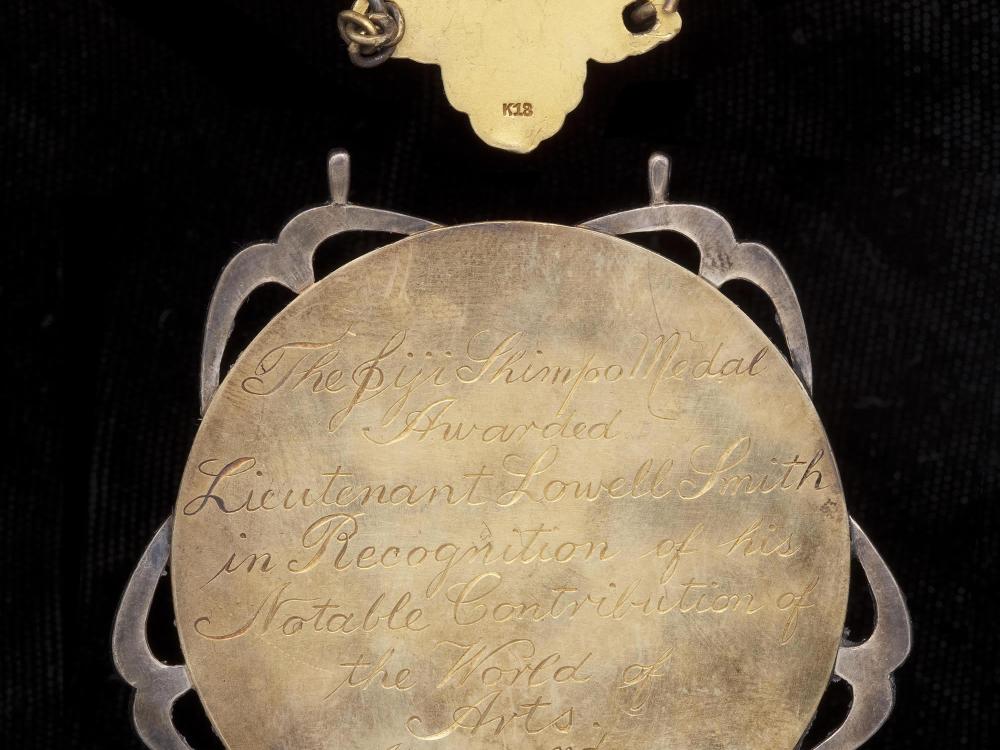 K18
The Jiji Shimpo Medal
Awarded
Lieutenant Lowell Smith
in Recognition of his
Notable Contribution of
the World of
Arts.